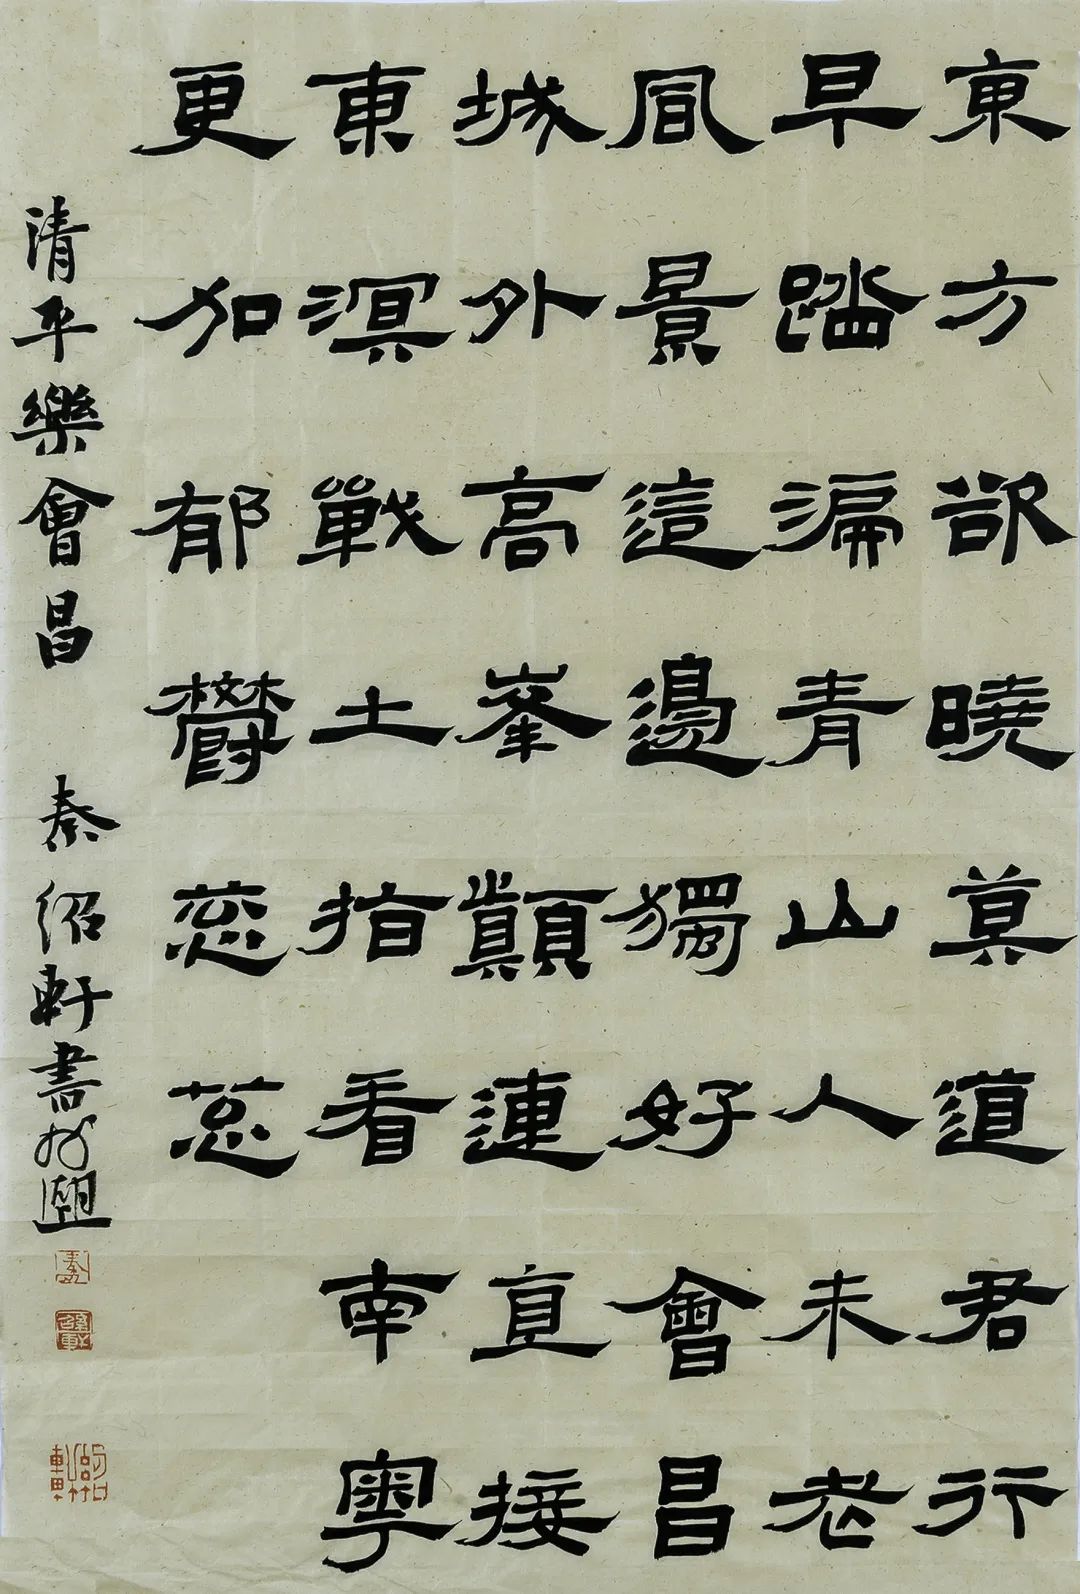 東方欲曉莫道君行
早踏徧青山人未老
風景這邊獨好會昌
城外高峯顛連直接
東溟戰士指看南粵
更加郁鬱葱葱
清平樂會昌 秦紹軒書於